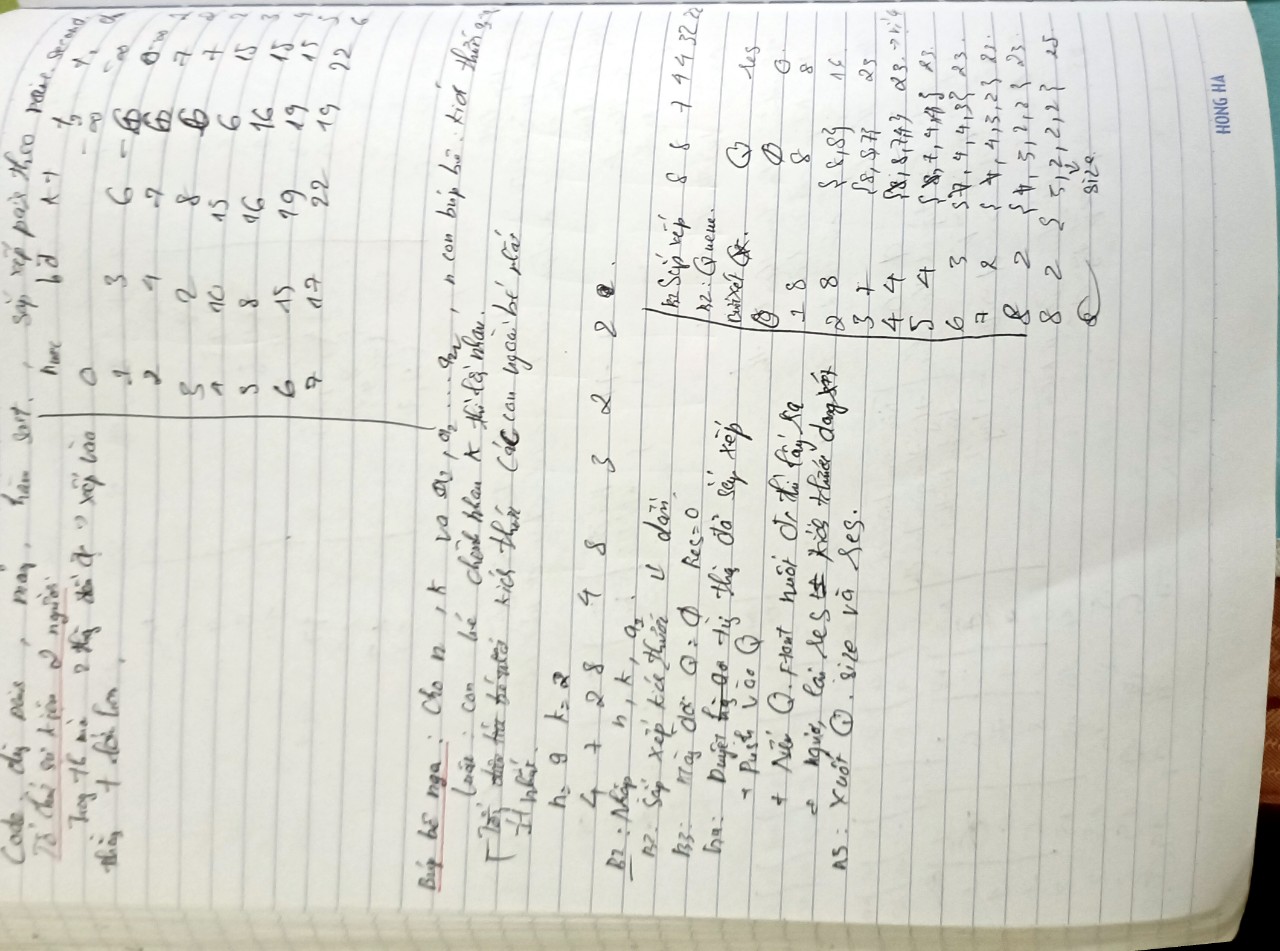 Code dãy pair, mảng, hàm sort, sắp xếp pair theo pair.second
Tổ chức sự kiện 2 người:
Trong th mà 2 thằng đều đc → xếp vào
thằng t lớn hơn.
bđ kt t2 t1
0 -∞ -∞
1 3 6 -∞
2 4 7 6
3 2 8 6 7
4 10 15 6 7 2
5 8 16 6 15 3
6 15 19 16 15 4
7 17 22 19 15 5
19 22 6
Búp bê nga: Cho n, k và a1, a2 ... an, n con búp bê. kích thước
Luật: con bé chênh nhau k thì lồng nhau.
kích thước các con ngoài bé nhất
ít nhất.
n= 9 k= 2
4 7 2 8 4 8 3 2 2
B1: Nhập n, k, ai.
B2: Sắp xếp kích thước ↓ dần
B3: Hàng đợi Q = ∅ Res=0
B4: Duyệt từ thg đã sắp xếp
+ Push vào Q
+ Nếu Q.front nuốt đc thì lấy ra
+ Ngược lại res + kích thước đang xét
B5: Xuất Q.size và res.
B1 Sắp xếp 8 8 7 4 4 3 2 2 2
B2: Queue.
Q res
0 ∅ 0
1 8 8 8
2 8 {8,8} 16
3 7 {8,8,7} 23
4 4 {8,8,7,4} 23
5 4 {8,7,4,4} 23
6 3 {7,4,4,3} 23
7 2 {4,4,3,2} 23
8 2 {4,3,2,2} 23
8 2 {3,2,2,2} 25
size
HONG HA